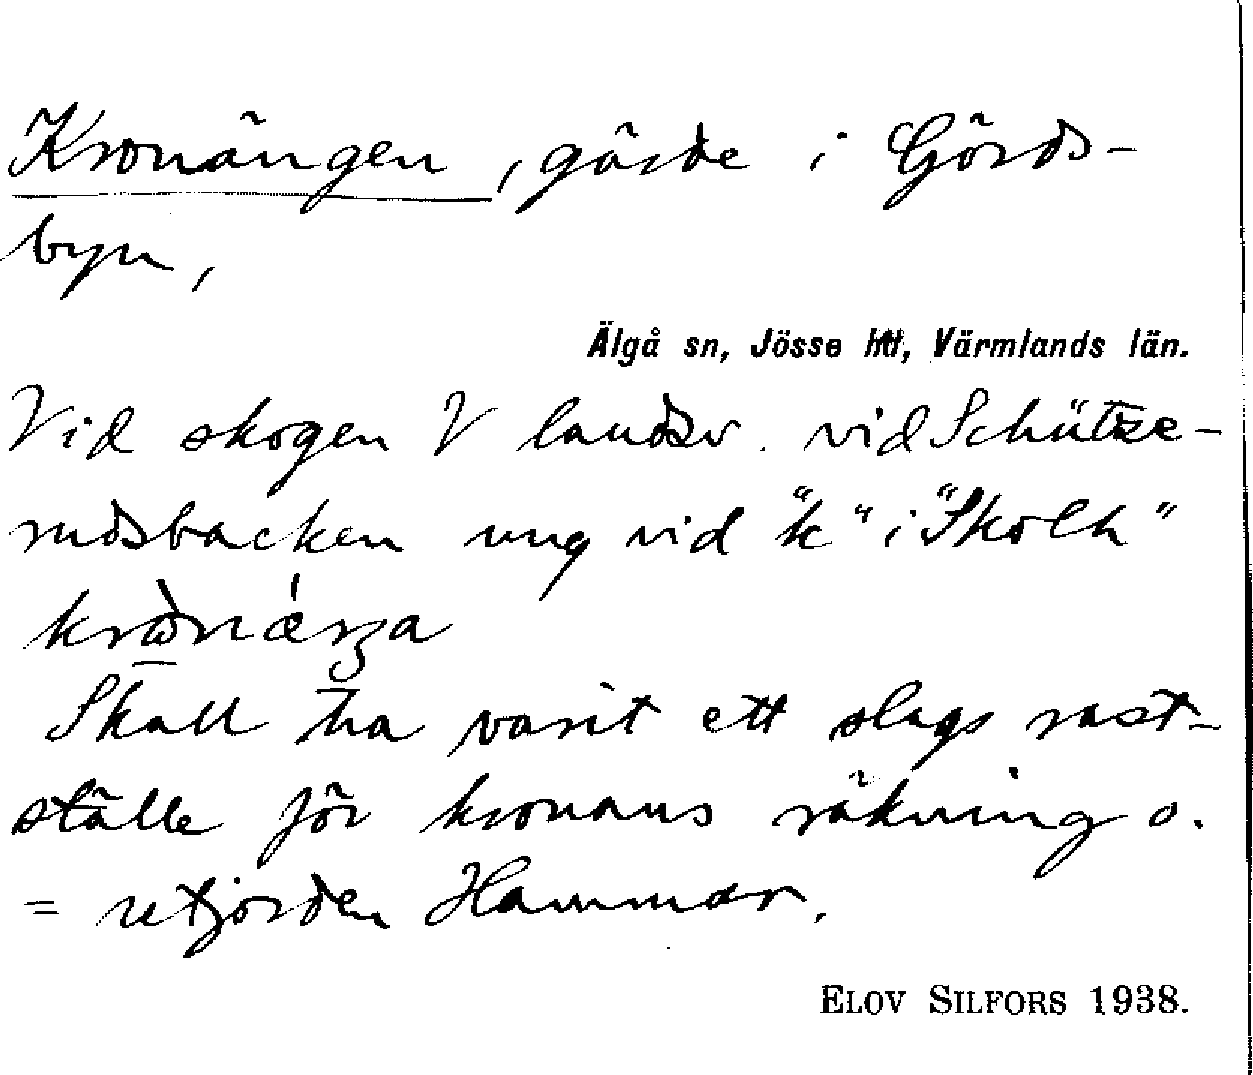 Kronängen, gärde i Görds-
byn,
Älgå sn, Jösse hd, Värmlands län.
Vid skogen V landsv. vid Schütze-
rudsbacken ung vid "k" i "Skolh"
Skall ha varit ett slags rast-
ställe för kronans räkning o.
= utjorden Hammar.
ELOV SILFORS 1938.